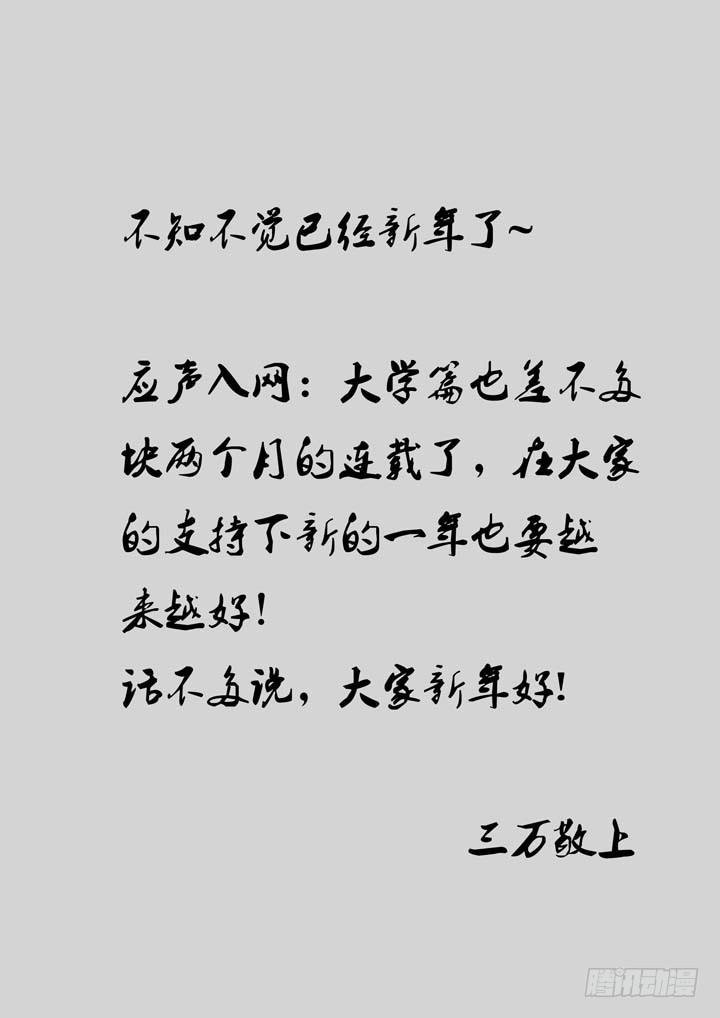 不知不觉已经新年了~
应声入网：大学篇也差不多
块两个月的连载了，在大家
的支持下新的一年也要越
来越好!
话不多说，大家新年好!
三万敬上
腾讯动漫